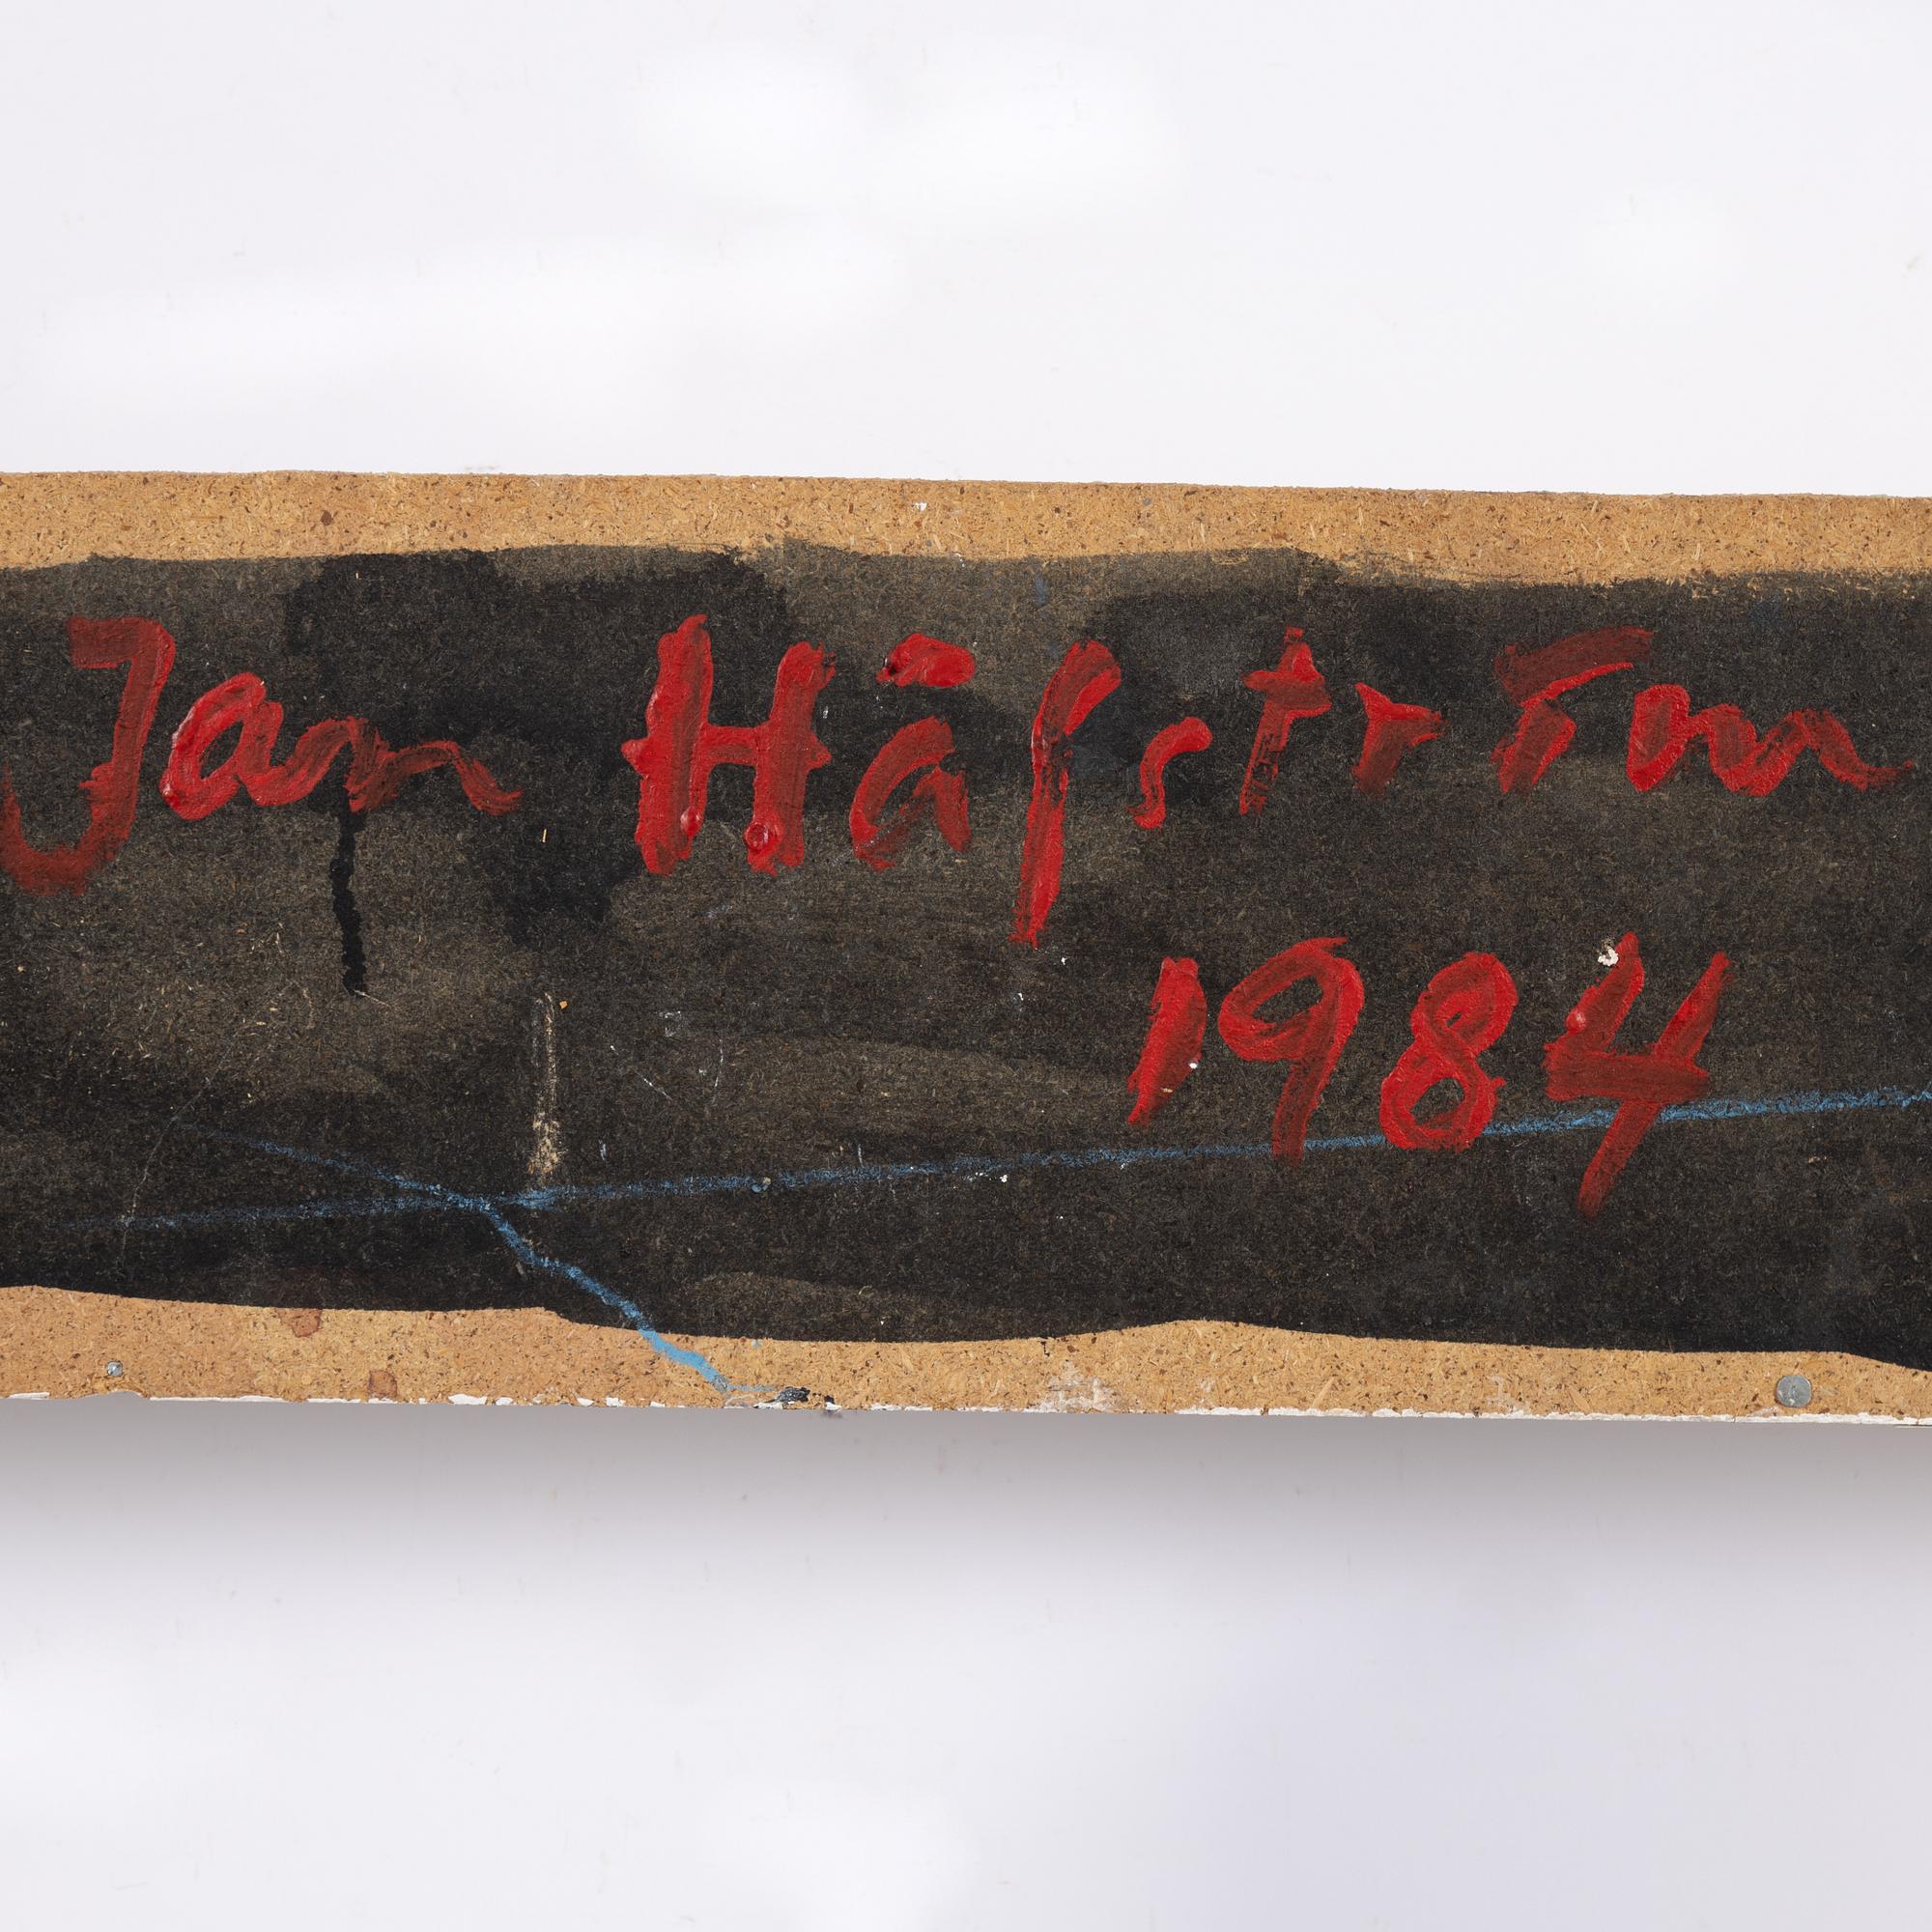 Jan Håfström
1984